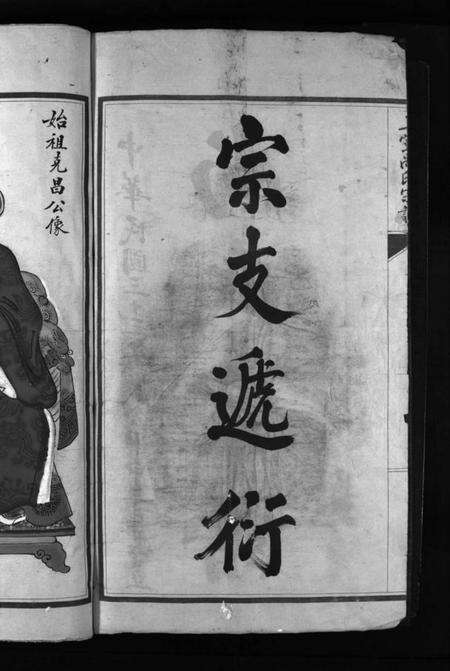 宗支遞衍
始祖克昌公像